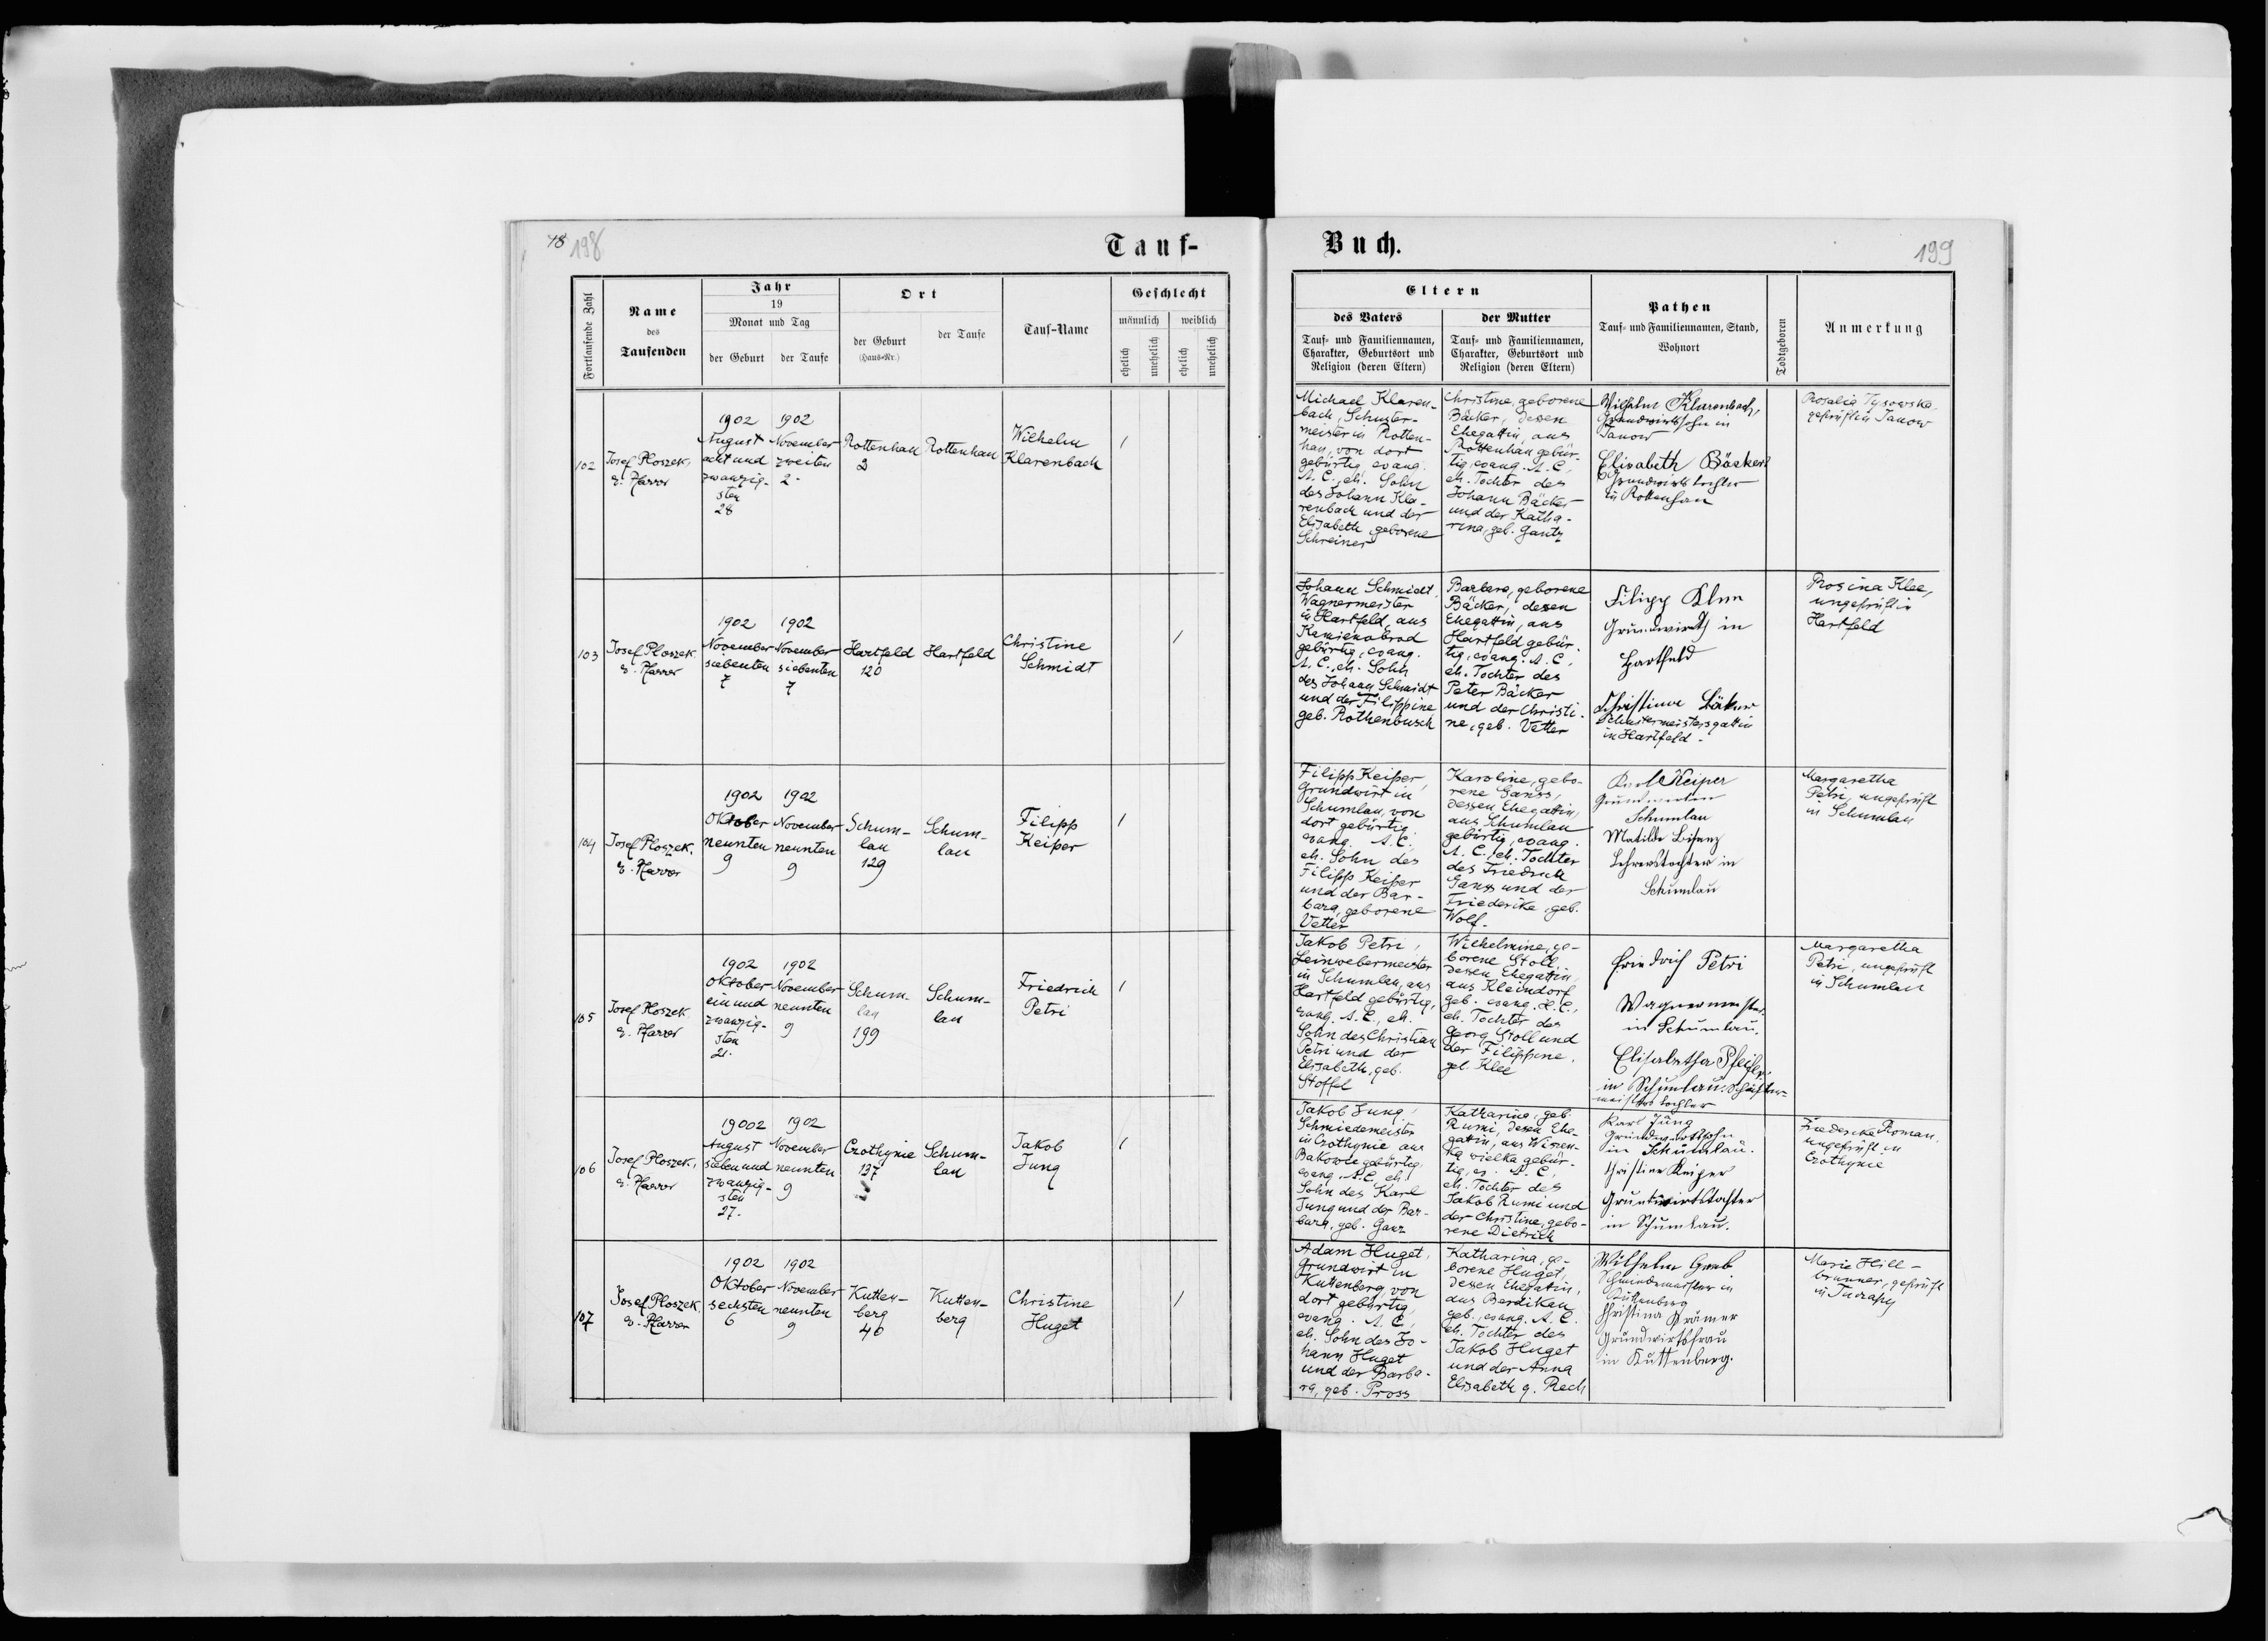 48 198
Tauf-
Fortlaufende Zahl
Name
des
Taufenden
Jahr
19
Monat und Tag
der Geburt
der Taufe
Ort
der Geburt
(Haus-Nr.)
der Taufe
Tauf-Name
Geschlecht
männlich
weiblich
ehelich
unehelich
ehelich
unehelich
102
Josef Ploszek,
e. Pfarrer
1902
August
acht und
zwanzig-
sten
28
1902
November
zweiten
2.
Rottenhan
2
Rottenhan
Wilhelm
Klarenbach
1
103
Josef Ploszek
e. Pfarrer
1902
November
siebenten
7
1902
November
siebenten
7
Hartfeld
120
Hartfeld
Christine
Schmidt
1
104
Josef Ploszek.
e. Pfarrer
1902
Oktober
neunten
9
1902
November
neunten
9
Schum-
lau
129
Schum-
lau
Filipp
Keiper
1
105
Josef Ploszek
e. Pfarrer
1902
Oktober
ein und
zwanzig-
sten
21.
1902
November
neunten
9
Schum-
lau
199
Schum-
lau
Friedrich
Petri
1
106
Josef Ploszek,
e. Pfarrer
19002
August
sieben und
zwanzig-
sten
27.
1902
November
neunten
9
Czothynie
137
Schum-
lau
Jakob
Jung
1
107
Josef Ploszek
e. Pfarrer
1902
Oktober
sechsten
6
1902
November
neunten
9
Kutten-
berg
40
Kutten-
berg
Christine
Huget
1
Buch.
199
Eltern
des Vaters
Tauf- und Familiennamen,
Charakter, Geburtsort und
Religion (deren Eltern)
der Mutter
Tauf- und Familiennamen,
Charakter, Geburtsort und
Religion (deren Eltern)
Pathen
Tauf- und Familiennamen, Stand,
Wohnort
Todtgeboren
Anmerkung
Michael Klaren-
bach, Schuster-
meister in Rotten-
han, von dort
gebürtig, evang.
A. C., eh. Sohn
des Johann Kla-
renbach und der
Elisabeth, geborene
Schreiner
Christine, geborene
Bäcker, dessen
Ehegattin, aus
Rottenhan gebür-
tig, evang. A. C.,
eh. Tochter des
Johann Bäcker
und der Katha-
rina, geb. Gantz
Wilhelm Klarenbach,
Grundwirtssohn in
Janow
Elisabeth Bäcker
Grundwirtstochter
in Rottenhan
Rosalia Tysowska,
geprüft in Janow
Johann Schmidt,
Wagnermeister
in Hartfeld, aus
Kamienobrod
gebürtig, evang.
A. C., eh. Sohn
des Johann Schmidt
und der Filippine
geb. Rothenbusch
Barbara, geborene
Bäcker, dessen
Ehegattin, aus
Hartfeld gebür-
tig, evang. A. C.,
eh. Tochter des
Peter Bäcker
und der Christi-
ne, geb. Vetter
Filipp Klee
Grundwirth in
Hartfeld
Christina Bäker
Schustermeistersgattin
in Hartfeld.
Rosina Klee,
ungeprüft in
Hartfeld
Filipp Keiper,
Grundwirt in
Schumlau, von
dort gebürtig,
evang. A. C.,
eh. Sohn des
Filipp Keiper
und der Bar-
bara, geborene
Vetter
Karoline, gebo-
rene Ganss,
dessen Ehegattin,
aus Schumlau
gebürtig, evang.
A. C., eh. Tochter
des Friedrich
Ganss und der
Friederike, geb.
Wolf.
Karl Keiper
Schumlau
Matilde Bisanz
Lehrerstochter in
Schumlau
Margaretha
Petri, ungeprüft
in Schumlau
Jakob Petri,
Leinwebermeister
in Schumlau, aus
Hartfeld gebürtig,
evang. A. C., eh.
Sohn des Christian
Petri und der
Elisabeth, geb.
Stoffel
Wilhelmine, ge-
borene Stoll,
dessen Ehegattin,
aus Kleindorf
geb. evang. A. C.,
eh. Tochter des
Georg Stoll und
der Filippine,
geb. Klee
Friedrich Petri
Wagnermeister
in Schumlau.
Elisabetha Pfeifer
in Schumlau. Schuster-
meisters tochter
Margaretha
Petri, ungeprüft
in Schumlau
Jakob Jung,
Schmiedemeister
in Czothynie aus
Bakowce gebürtig,
evang. A. C., eh.
Sohn des Karl
Jung und der Bar-
bara, geb. Ganz
Katharina, geb.
Rumi, dessen Ehe-
gattin, aus Wiszen-
ka wielka gebür-
tig, ev. A. C.,
eh. Tochter des
Jakob Rumi und
der Christine, gebo-
rene Dietrich
Karl Jung
Grundwirtssohn
in Schumlau.
Christine Keiper
Grundwirtstochter
in Schumlau.
Friedericke Roman,
ungeprüft in
Czothynie
Adam Huget,
Grundwirt in
Kuttenberg von
dort gebürtig,
evang. A. C.,
eh. Sohn des Jo-
hann Huget
und der Barba-
ra, geb. Pross
Katharina, ge-
borene Huget,
dessen Ehegattin,
aus Berdikau
geb., evang. A. C.
eh. Tochter des
Jakob Huget
und der Anna
Elisabeth g. Rech
Wilhelm Grab
Schmiedemeister in
Kuttenberg
Christina Krämer
Grundwirtsfrau
in Kuttenberg.
Marie Hill-
brunner, geprüft
in